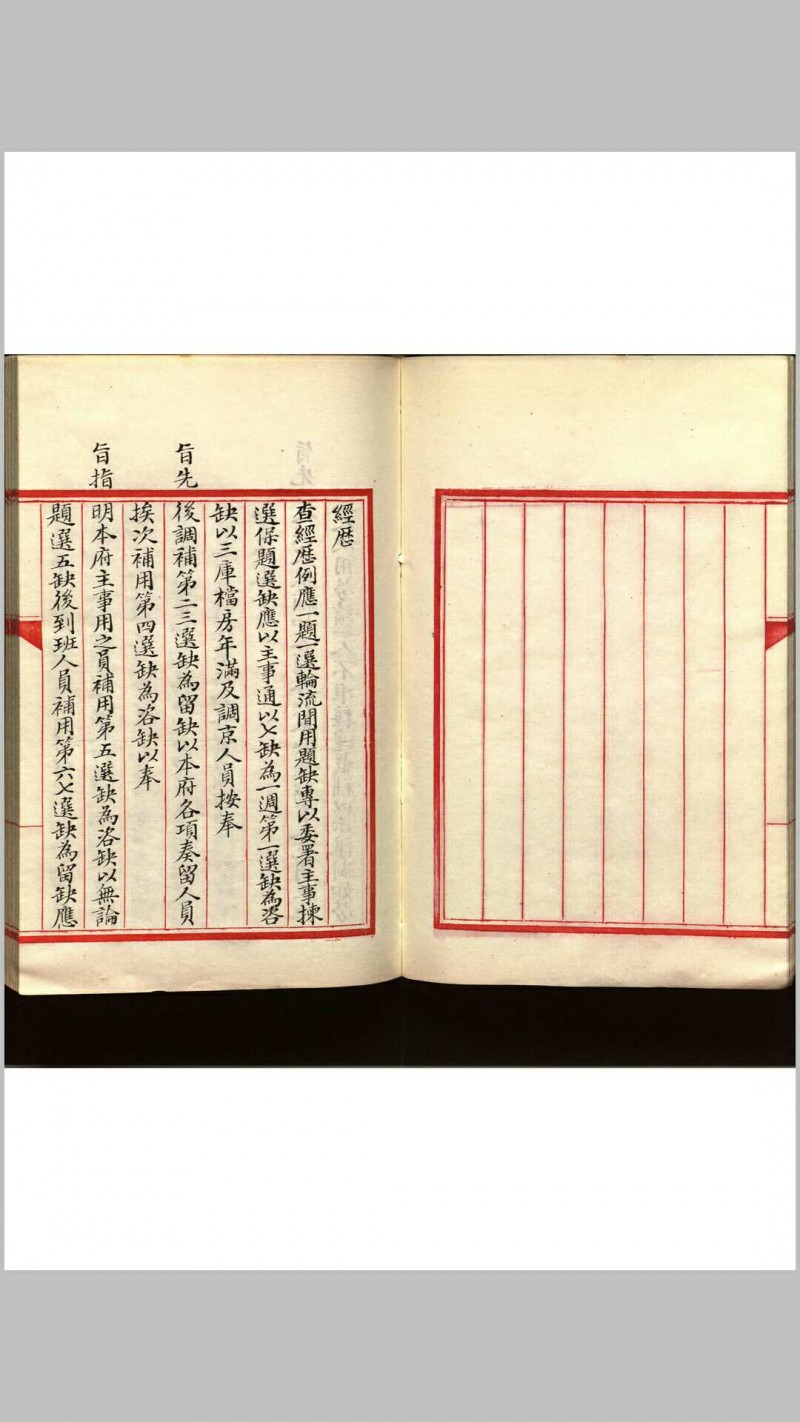 經歷
查經歷例應一題一選輪流間用題缺專以委署主事揀
選保題選缺應以主事通以七缺為一週第一選缺為咨
缺以三庫檔房年滿及調京人員按奉
旨先後調補第二三選缺為留缺以本府各項奏留人員
挨次補用第四選缺為咨缺以奉
旨指明本府主事用之員補用第五選缺為咨缺以無論
題選五缺後到班人員補用第六七選缺為留缺應